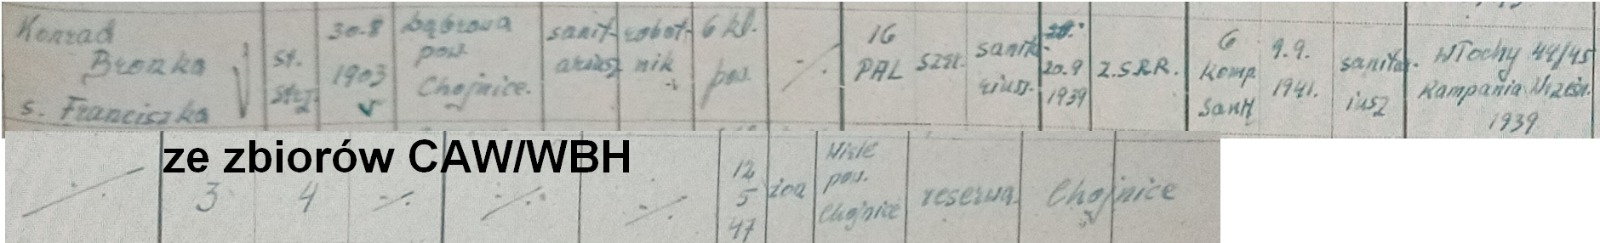 Konrad
Bronka
s. Franciszka
st.
strz.
30.8
1903
Dąbrowa
pow.
Chojnice.
sanit-
ariusz
robot-
nik
6 kl.
pow.
16
PAL
szer.
sanita-
riusz.
20.9
1939
Z.S.R.R.
6
Komp
Sanit
9.9.
1941.
sanitar-
iusz
Włochy 44/45
Kampania Wrześn.
1939
ze zbiorów CAW/WBH
3
4
12
5
47
żona
Wiele
pow.
Chojnice
reserwa.
Chojnice